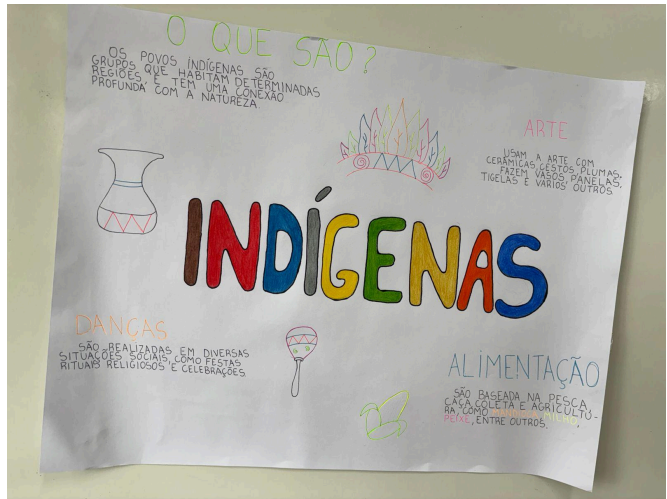 O QUE SÃO?
OS POVOS INDÍGENAS SÃO
GRUPOS QUE HABITAM DETERMINADAS
REGIÕES, E TEM UMA CONEXÃO
PROFUNDA COM A NATUREZA
ARTE
USAM A ARTE COM
CERÂMICAS, CESTOS, PLUMAS.
FAZEM VASOS, PANELAS,
TIGELAS E VÁRIOS OUTROS.
INDÍGENAS
DANÇAS
SÃO REALIZADAS EM DIVERSAS
SITUAÇÕES SOCIAIS, COMO FESTAS
RITUAIS RELIGIOSOS E CELEBRAÇÕES.
ALIMENTAÇÃO
SÃO BASEADA NA PESCA,
CAÇA, COLETA E AGRICULTU-
RA, COMO MILHO,
PEIXE, ENTRE OUTROS.